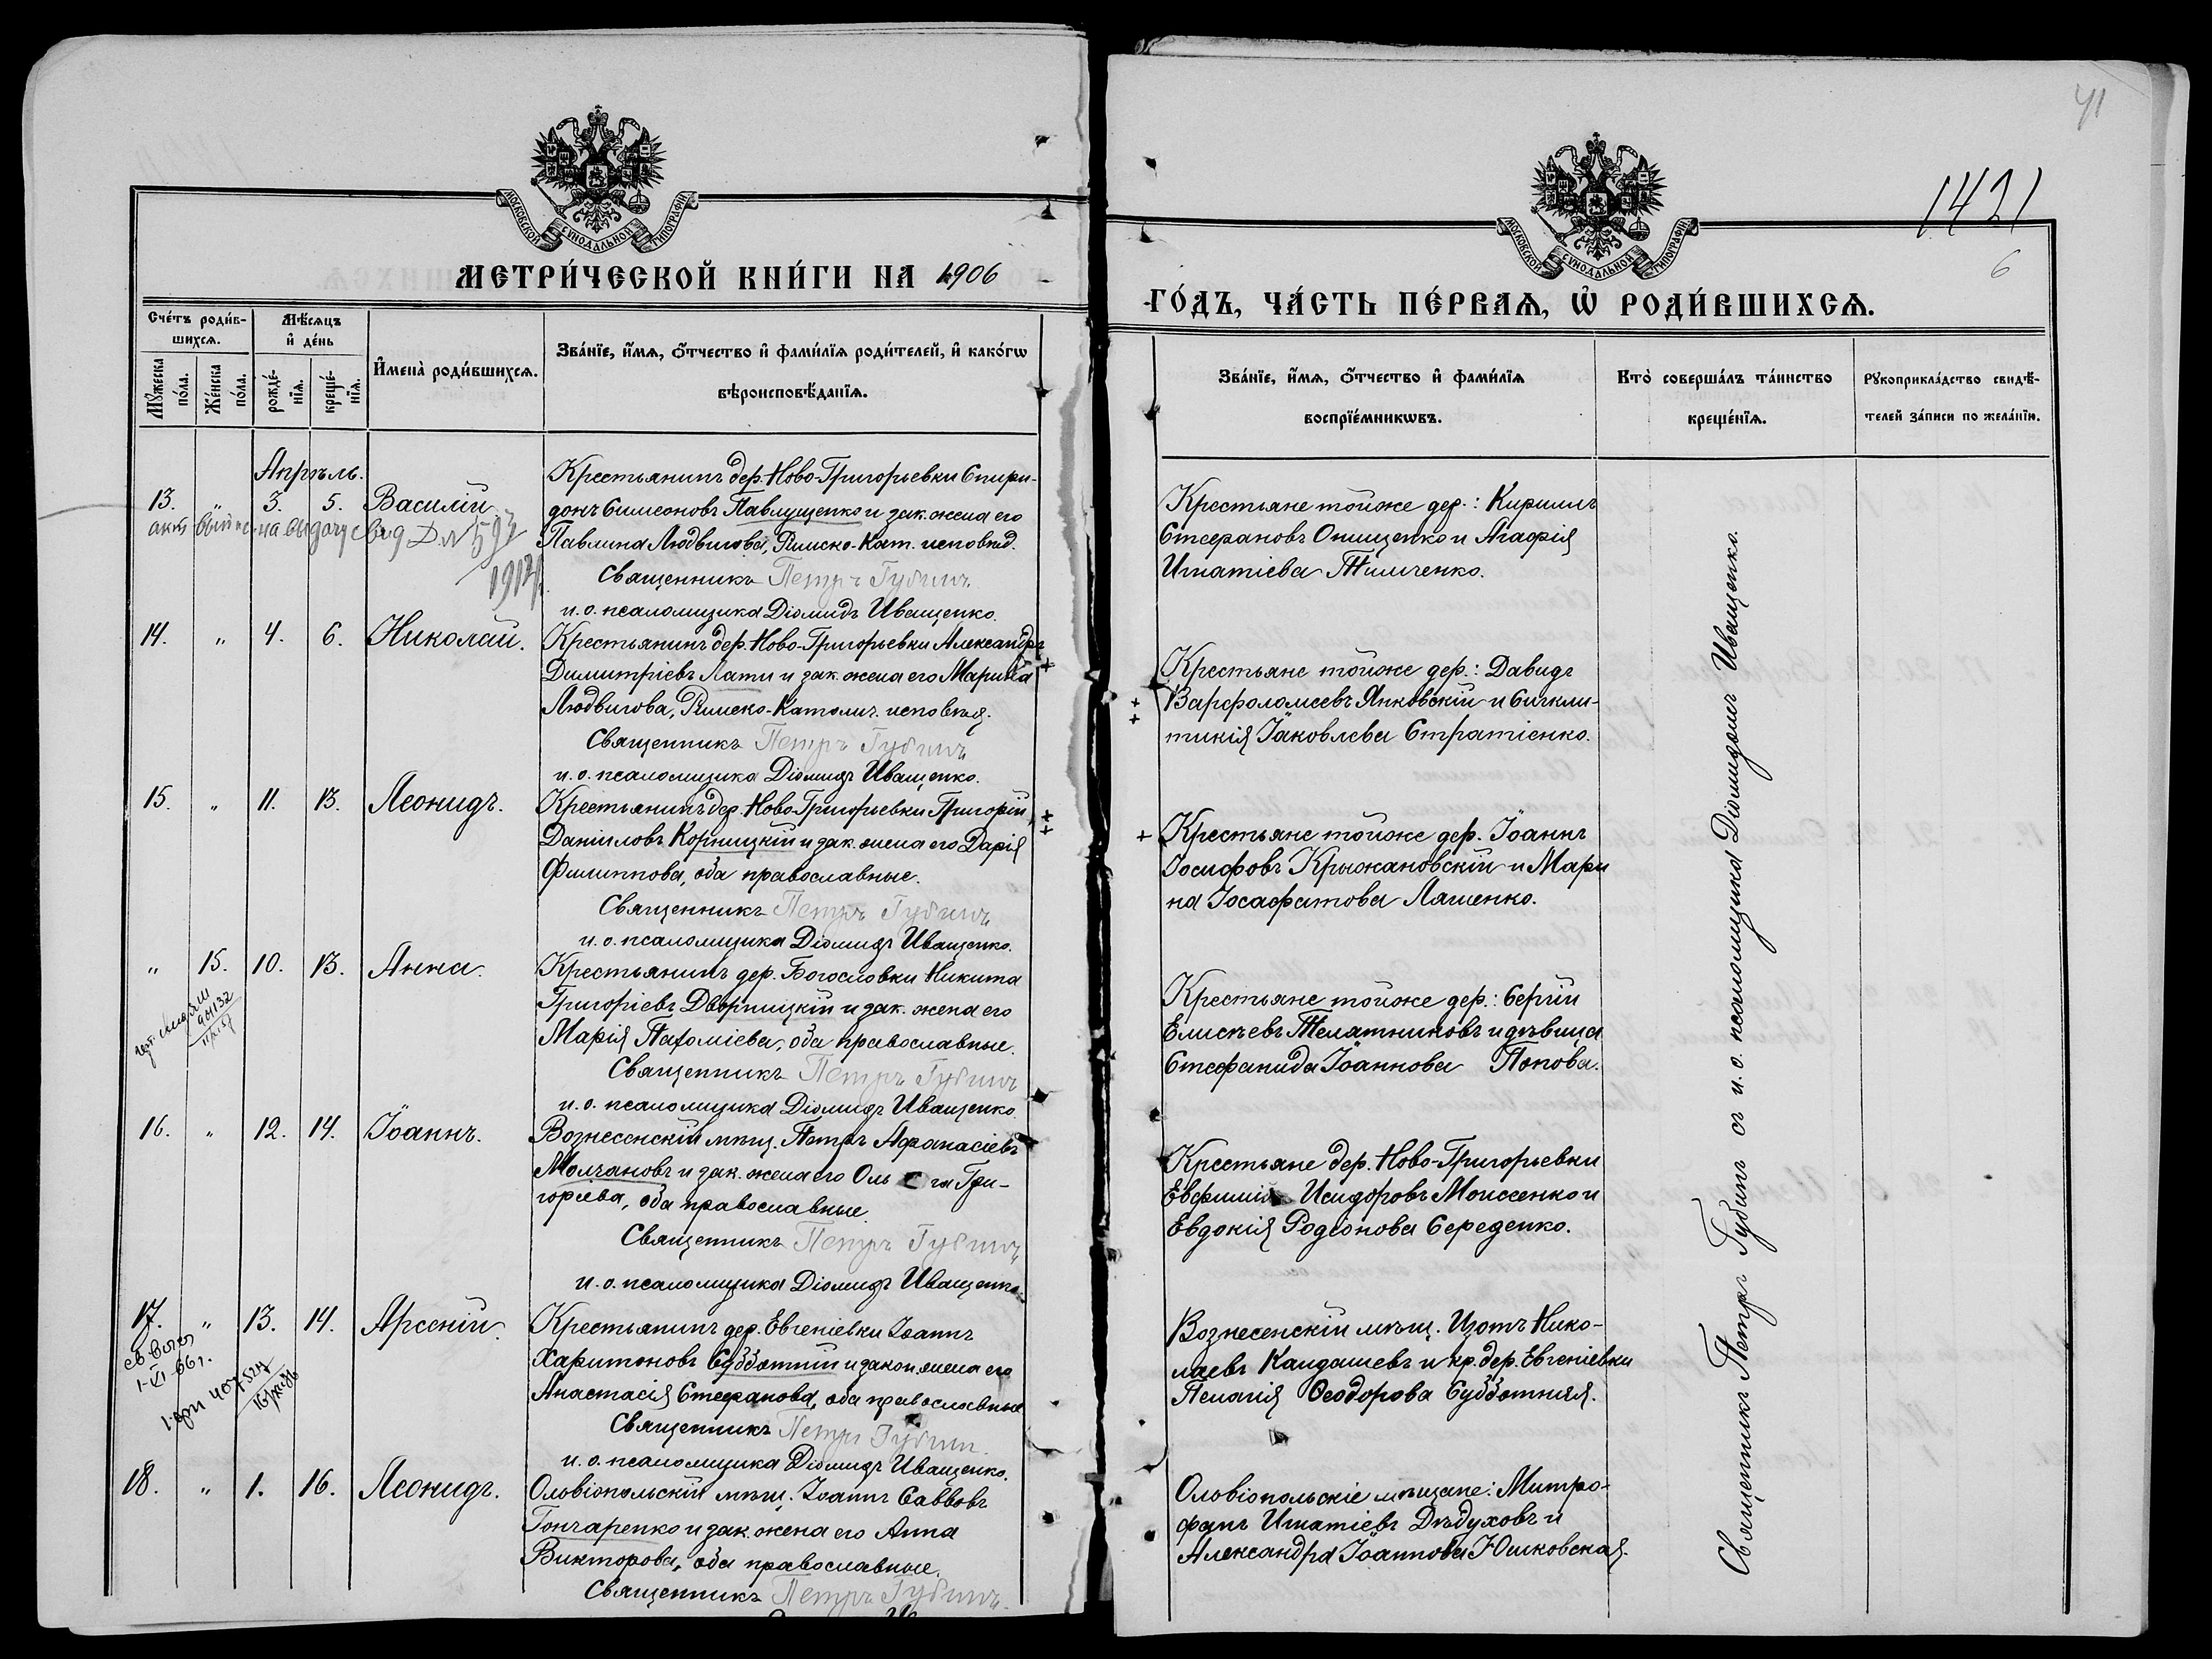 41
1421
6
МОСКОВСКОЙ СѴНОДАЛЬНОЙ ТИПОГРАФІИ
МОСКОВСКОЙ СѴНОДАЛЬНОЙ ТИПОГРАФІИ
МЕТРИ́ЧЕСКОЙ КНИ́ГИ НА 1906
ГО́ДЪ, ЧА́СТЬ ПЕ́РВАѦ, Ѡ҆ РОДИ́ВШИХСѦ.
Сче́тъ роди́в-
шихсѧ.
Мѣ́сѧцъ
и҆ де́нь
Мꙋ́жеска
по́ла.
Же́нска
по́ла.
рожде́-
нїѧ.
креще́-
нїѧ.
И҆мена̀ роди́вшихсѧ.
Зва́нїе, и҆́мѧ, ѻ҆́тчество и҆ фами́лїѧ роди́телей, и҆ како́гѡ
вѣроисповѣ́данїѧ.
Зва́нїе, и҆́мѧ, ѻ҆́тчество и҆ фами́лїѧ
воспрїе́мникѡвъ.
Кто̀ соверша́лъ та́инство
креще́нїѧ.
Рꙋкоприкла́дство свидѣ́-
телей за́писи по жела́нїю.
Апрѣль.
13. " 3. 5. Василій
Крестьянинъ дер. Ново-Григорьевки Спири-
донъ Симеоновъ Павлущенко и зак. жена его
Павлина Людвигова, Римско-Кат. исповѣд.
Священникъ Петръ Губинъ
и. о. псаломщика Діомидъ Иващенко.
Крестьяне тойже дер.: Кириллъ
Стефановъ Онищенко и Агафія
Игнатіева Тимченко.
14. " 4. 6. Николай.
Крестьянинъ дер. Ново-Григорьевки Александръ
Димитріевъ Лати и зак. жена его Марина
Людвигова, Римско-Католич. исповѣд.
Священникъ Петръ Губинъ
и. о. псаломщика Діомидъ Иващенко.
Крестьяне тойже дер.: Давидъ
Варфоломеевъ Янковскій и Сигкли-
тикія Іаковлева Стратіенко.
15. " 11. 13. Леонидъ.
Крестьянинъ дер. Ново-Григорьевки Григорій
Даніиловъ Корницкій и зак. жена его Дарія
Филиппова, оба православные.
Священникъ Петръ Губинъ
и. о. псаломщика Діомидъ Иващенко.
Крестьяне тойже дер. Іоаннъ
Іосифовъ Крыжановскій и Мари
на Іосафатова Ляшенко.
" 15. 10. 13. Анна.
Крестьянинъ дер. Богословки Никита
Григоріевъ Дворницкій и зак. жена его
Марія Пахоміева, оба православные.
Священникъ Петръ Губинъ
и. о. псаломщика Діомидъ Иващенко.
Крестьяне тойже дер.: Сергій
Елисѣевъ Телятниковъ и дѣвица
Стефанида Іоаннова Попова.
16. " 12. 14. Іоаннъ.
Вознесенскій мѣщ. Петръ Афанасіевъ
Молчановъ и зак. жена его Ольга Гри-
горіева, оба православные.
Священникъ Петръ Губинъ
и. о. псаломщика Діомидъ Иващенко.
Крестьяне дер. Ново-Григорьевки
Евфимій Исидоровъ Моисеенко и
Евдокія Родіонова Середенко.
17. " 13. 14. Арсеній.
Крестьянинъ дер. Евгеніевки Іоаннъ
Харитоновъ Субботній и закон. жена его
Анастасія Стефанова, оба православные
Священникъ Петръ Губинъ.
и. о. псаломщика Діомидъ Иващенко.
Вознесенскій мѣщ. Изотъ Нико-
лаевъ Кандашевъ и кр. дер. Евгеніевки
Пелагія Ѳеодорова Субботняя.
18. " 1. 16. Леонидъ.
Ольвіопольскій мѣщ. Іоаннъ Саввовъ
Гончаренко и зак. жена его Анна
Викторова, оба православные.
Священникъ Петръ Губинъ.
Ольвіопольскіе мѣщане: Митро-
фанъ Игнатіевъ Дѣдуховъ и
Александра Іоаннова Юшковская.
Священникъ Петръ Губинъ съ и. о. псаломщика Діомидомъ Иващенко.